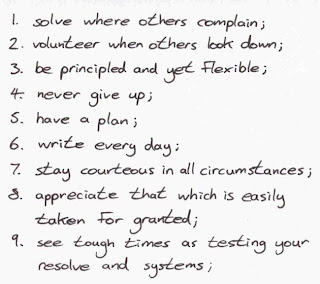 1. solve where others complain;
2. volunteer when others look down;
3. be principled and yet flexible;
4. never give up;
5. have a plan;
6. write every day;
7. stay courteous in all circumstances;
8. appreciate that which is easily
taken for granted;
9. see tough times as testing your
resolve and systems;